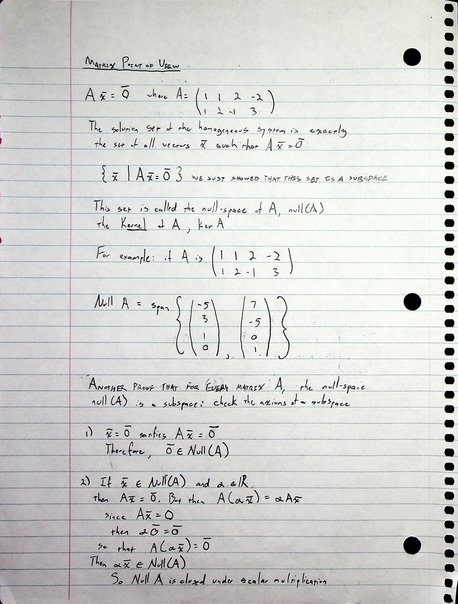 MATRIX POINT OF VIEW
A x̄ = 0̄ where A = (1 1 2 -2
1 2 -1 3)
The solution set of the homogeneous system is exactly
the set of all vectors x̄ such that A x̄ = 0̄
{ x̄ | A x̄ = 0̄ } WE JUST SHOWED THAT THIS SET IS A SUBSPACE
This set is called the null-space of A, null(A)
the Kernel of A, ker A
For example: if A is (1 1 2 -2
1 2 -1 3)
Null A = span { (-5 3 1 0), (7 -5 0 1) }
ANOTHER PROOF THAT FOR EVERY MATRIX A, the null-space
null(A) is a subspace: check the axioms of a subspace
1) x̄ = 0̄ satisfies A x̄ = 0̄
Therefore, 0̄ ∈ Null(A)
2) If x̄ ∈ Null(A) and α ∈ ℝ
then A x̄ = 0̄. But then A(α x̄) = α A x̄
since A x̄ = 0
then α 0̄ = 0̄
so that A(α x̄) = 0̄
Then α x̄ ∈ Null(A)
So Null A is closed under scalar multiplication